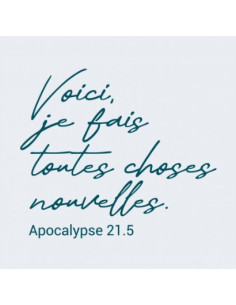 Voici,
je fais
toutes choses
nouvelles.
Apocalypse 21.5